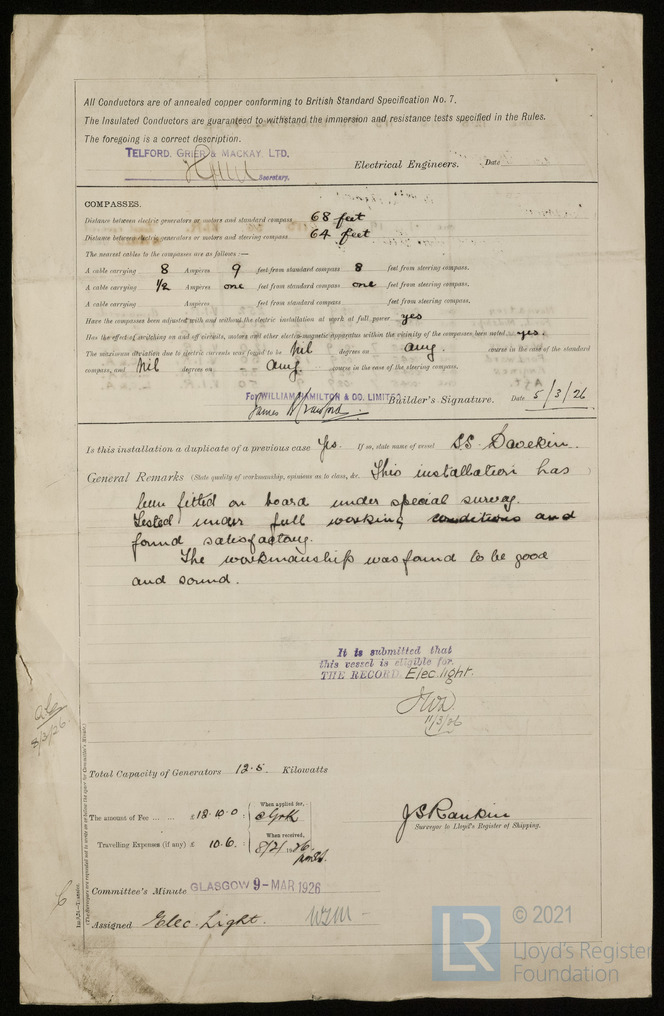 All Conductors are of annealed copper conforming to British Standard Specification No. 7.
The Insulated Conductors are guaranteed to withstand the immersion and resistance tests specified in the Rules.
The foregoing is a correct description.
TELFORD, GRIER & MACKAY, LTD.
Secretary.
Electrical Engineers. Date
COMPASSES.
Distance between electric generators or motors and standard compass 68 feet
Distance between electric generators or motors and steering compass 64 feet
The nearest cables to the compasses are as follows:—
A cable carrying 8 Ampères 9 feet from standard compass 8 feet from steering compass.
A cable carrying 1/2 Ampères one feet from standard compass one feet from steering compass.
A cable carrying Ampères feet from standard compass feet from steering compass.
Have the compasses been adjusted with and without the electric installation at work at full power yes
Has the effect of switching on and off circuits, motors and other electro-magnetic apparatus within the vicinity of the compasses been noted yes.
The maximum deviation due to electric currents was found to be Nil degrees on any course in the case of the standard
compass, and Nil degrees on any course in the case of the steering compass.
For WILLIAM HAMILTON & CO. LIMITED
James Crawford Builder's Signature. Date 5/3/26
Is this installation a duplicate of a previous case Yes. If so, state name of vessel SS.
General Remarks (State quality of workmanship, opinions as to class, &c. This installation has
been fitted on board under special survey.
Tested under full working conditions and
found satisfactory.
The workmanship was found to be good
and sound.
It is submitted that
this vessel is eligible for
THE RECORD. Elec. light.
11/3/26
8/3/26
Total Capacity of Generators 12.5. Kilowatts
The amount of Fee ... ... £ 13.10.0 : When applied for,
Travelling Expenses (if any) £ 10.6. : When received,
JS Rankin
Surveyor to Lloyd's Register of Shipping.
Committee's Minute GLASGOW 9-MAR 1926
Assigned Elec. Light.
LR
© 2021
Lloyd's Register
Foundation